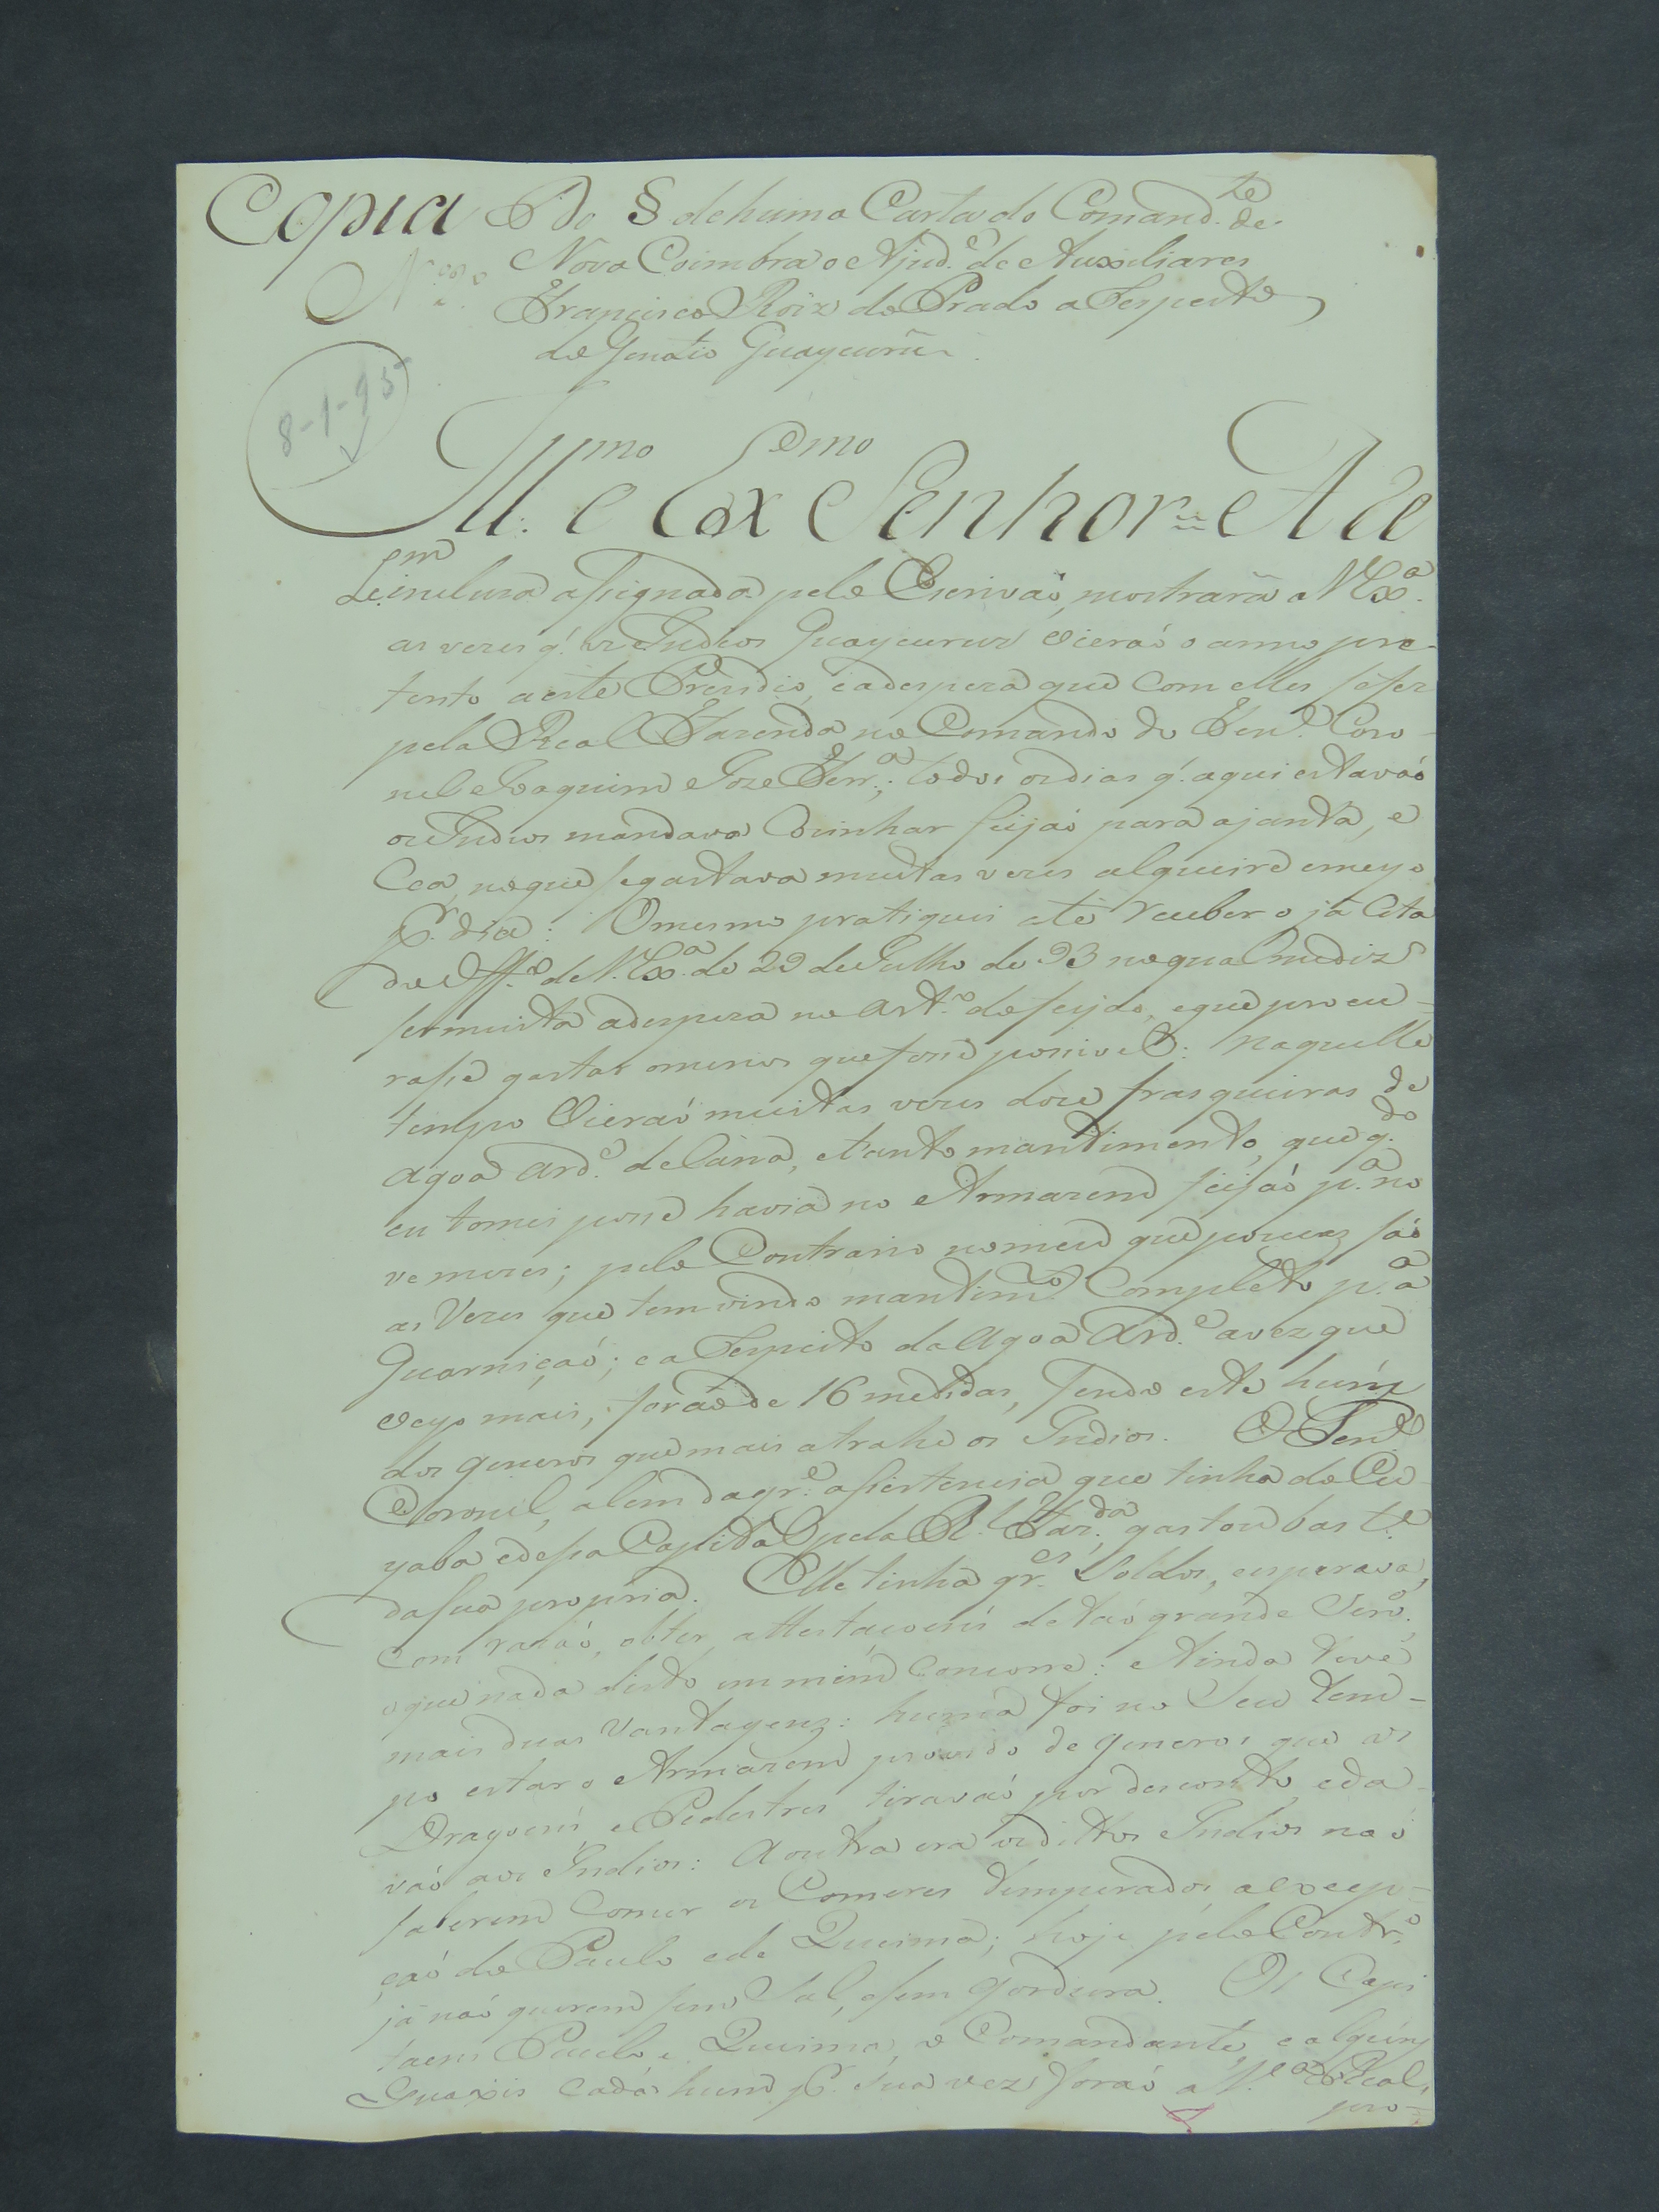 Copia Do § de huma Carta do Comand.te de
Nova Coimbra o Ajud.e de Auxiliares
Francisco Roiz do Prado a respeito
do Gentio Guaycurú
8-1-95
Ill.mo e Ex.mo Senhor = A Re
inclusa assignada pelo Escrivaõ, mostrará a V Ex.a
as vezes q. os Indios Guaycurus vieraõ o anno pre-
terito a este Prezidio, e a despeza que com elles se fez
pela Real Fazenda no Comando do Ten.e Coro-
nel Joaquim Joze Ferr.a; todos os dias q. aqui estavaõ
os Indios mandava Cozinhar feijaõ para a janta, e
Cea, no que se gastava muitas vezes alqueire e meyo
p.r dia: O mesmo pratiquei até receber o já Cita
do Off.o de V. Ex.a de 29 de Julho de 93 no qual me diz
ser muita a despeza no art.o do feijão, e que procu-
rasse gastar o menos que fosse possivel: naquelle
tempo vieraõ muitas vezes doze frasqueiras de
agoa ard.e de Cana, e tanto mantimento, que q.do
eu tomei posse havia no Armazem feijaõ p.a no
ve mezes; pelo Contrario no meu que poucas saõ
as vezes que tem vindo mantim.to Completo p.a a
Guarniçaõ; e a respeito da agoa Ard.e a vez que
veyo mais, foraõ de 16 medidas, sendo este hum
dos generos que mais atrahe os Indios. O Ten.e
Coronel, alem da gr.e assistencia que tinha do Cu-
yaba e dessa Capital pela R.l Faz.da, gastou bast.e
da sua propria. Elle tinha gr.es Soldos, esperava,
com razaõ, obter attestaçoens de taõ grande Serv.o,
o que nada disto em mim Concorre: Ainda teve
mais duas Vantagens: huma foi no Seu tem-
po estar o Armazem provido de generos que os
Dragoens e Pedestres tiravaõ por desconto, e da-
vaõ aos Indios: A outra era os dittos Indios naõ
saberem Comer os Comeres temperados a excep-
çaõ de Paulo e de Queima; hoje pelo Contr.o
já naõ querem sem Sal, e sem gordura. Os Capi
taens Paulo e Queima, o Comandante, e alguns
Guaxis cada hum p.r sua vez foraõ a V.a Real,
pro-